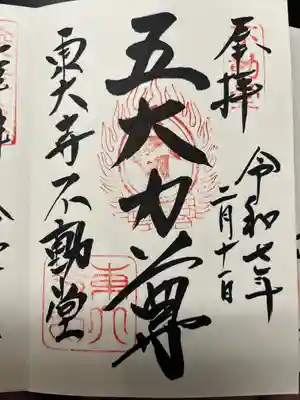 奉拝
令和七年
二月十一日
五大力尊
東大寺不動堂